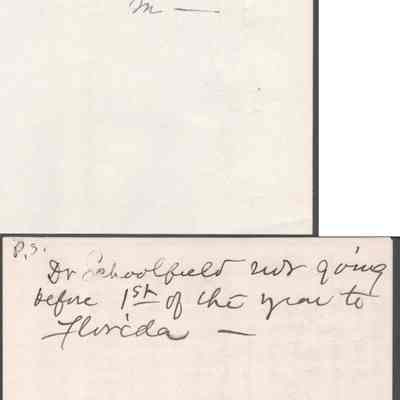 M —
P.S.
Dr Schoolfield not going
before 1st of the year to
Florida —